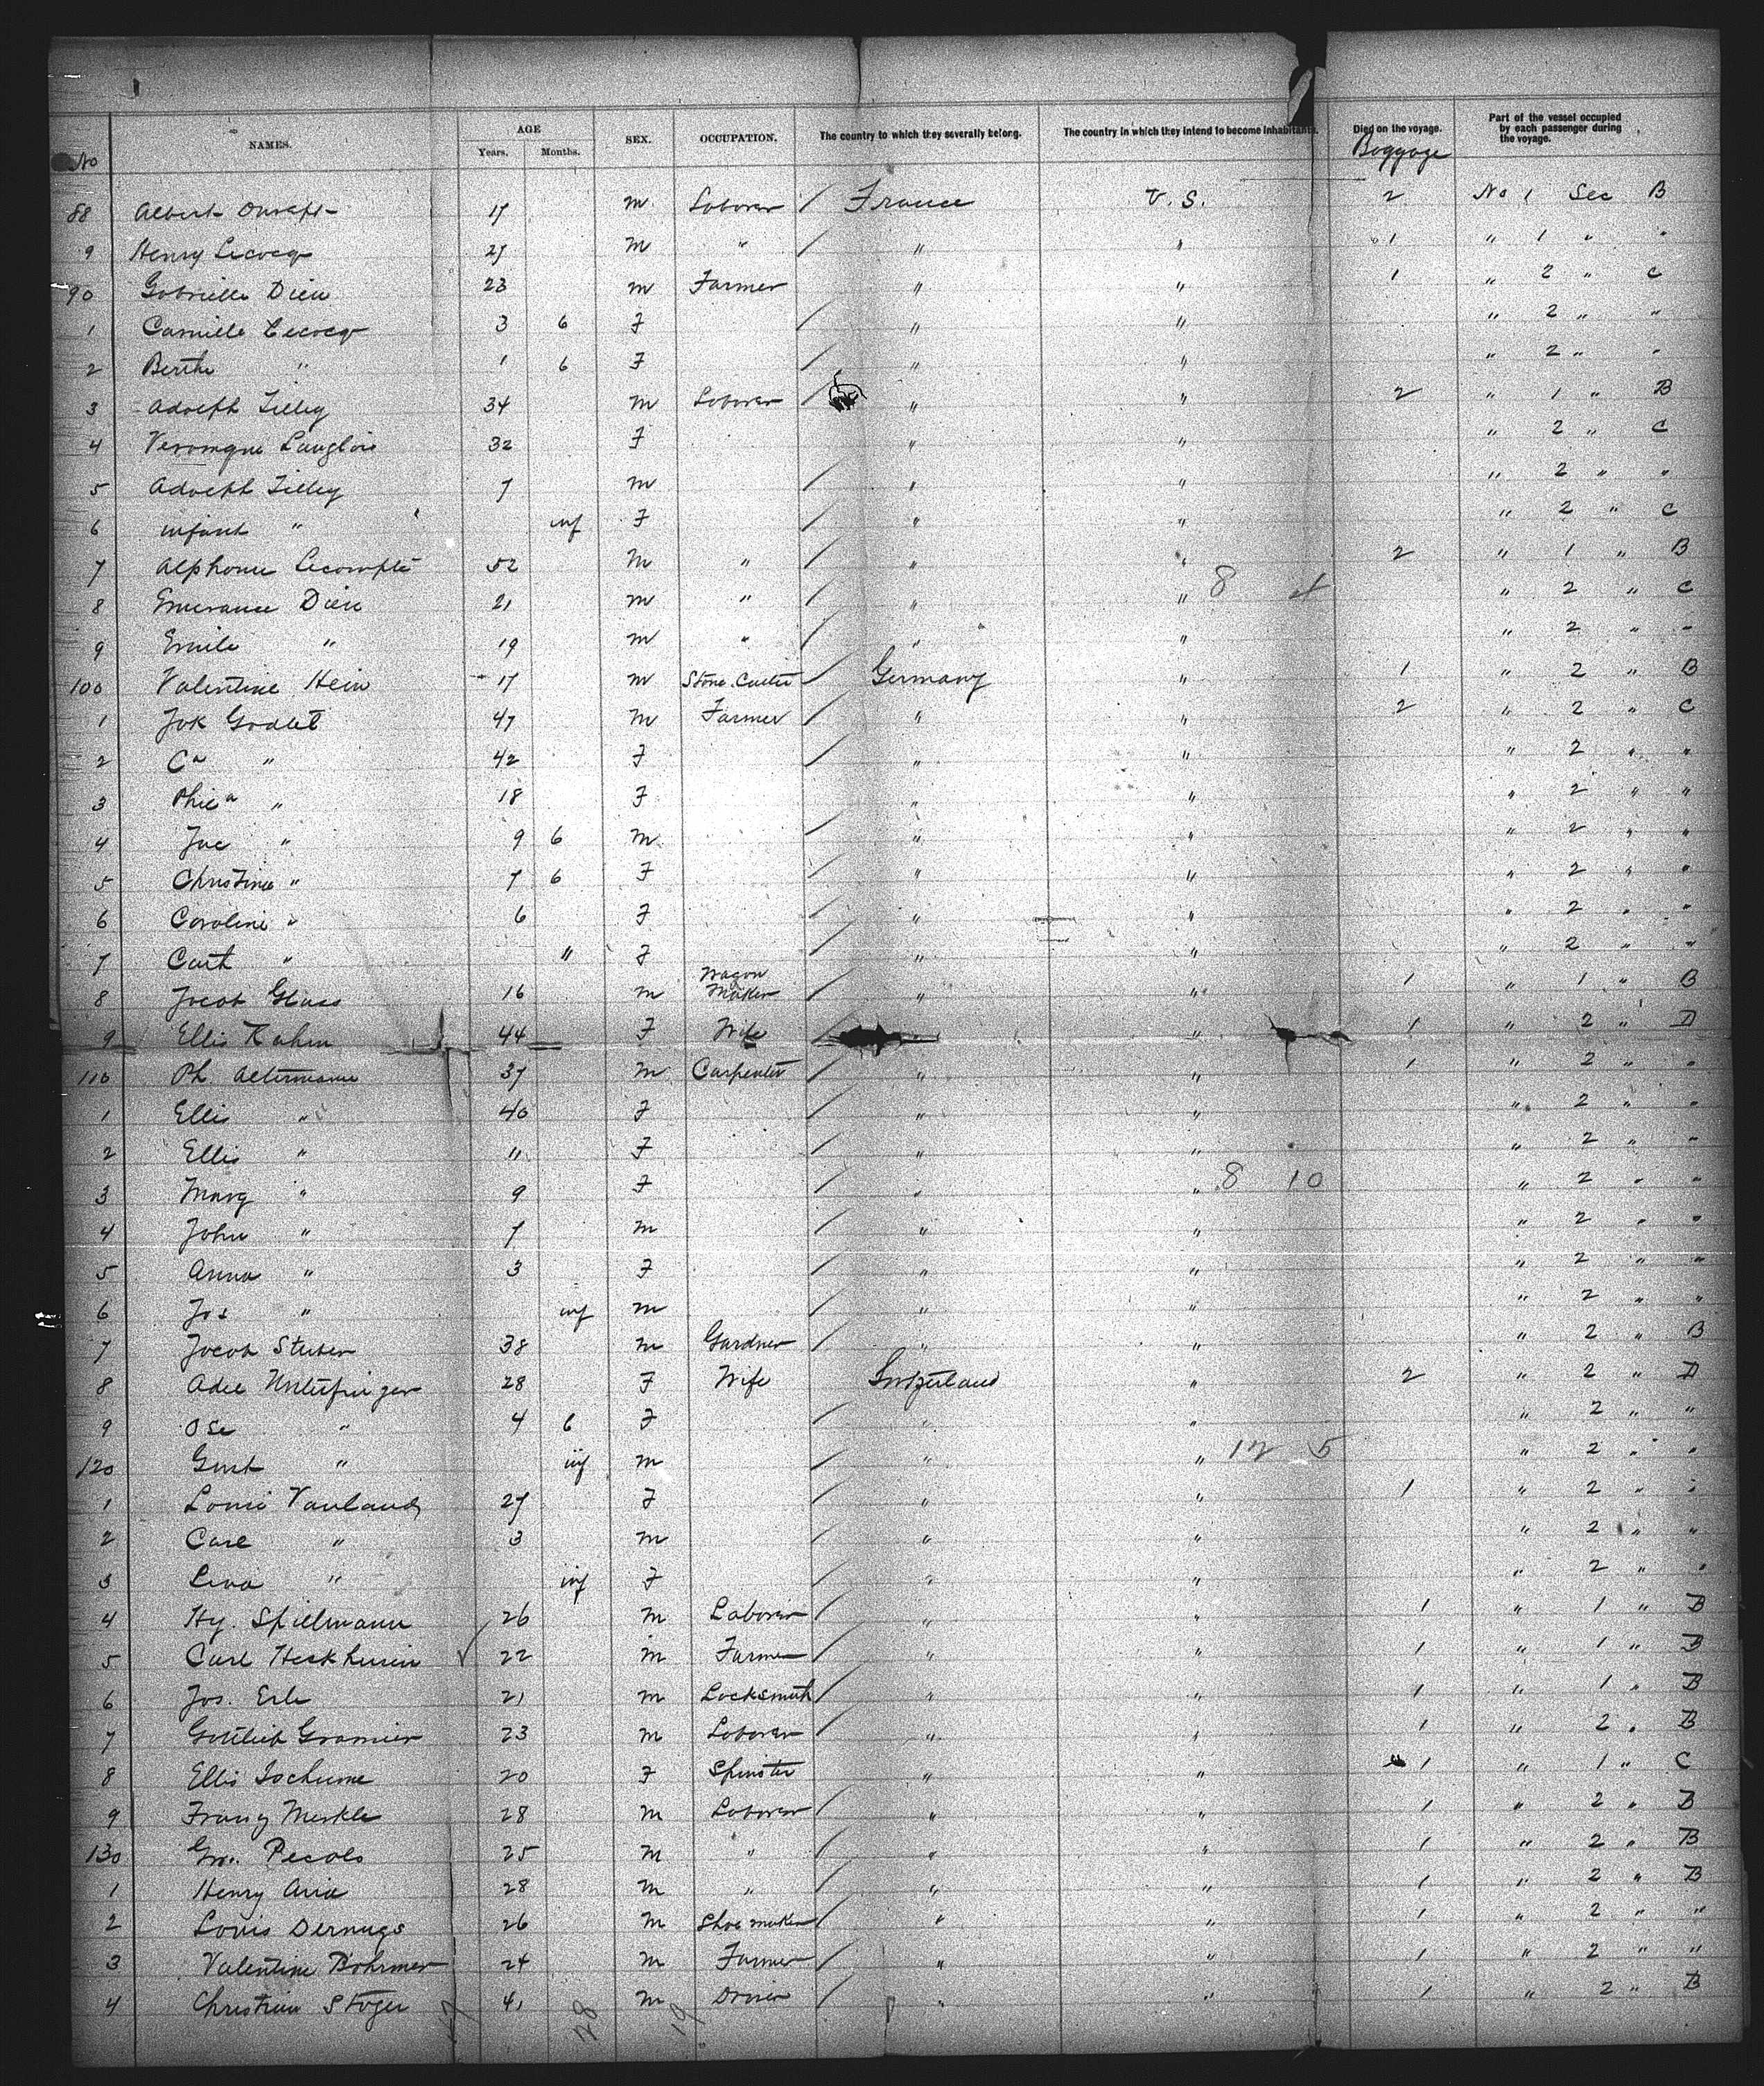 No NAMES. AGE Years. Months. SEX. OCCUPATION. The country to which they severally belong. The country in which they intend to become inhabitants. Died on the voyage. Baggage Part of the vessel occupied by each passenger during the voyage.
88 Albert 17 m Laborer / France U.S. 2 No 1 Sec B
9 Henry Lecocq 27 m " / " " 1 " 1 " "
90 Gabrielle Dieu 23 m Farmer " " 1 " 2 " C
1 Camille Lecocq 3 6 F / " " " 2 " "
2 Berthe " 1 6 F / " " " 2 " "
3 Adolph Tilley 34 m Laborer / " " 2 " 1 " B
4 Langlois 32 F " " " 2 " C
5 Adolph Tilley 7 m / " " " 2 " "
6 infant " inf F / " " " 2 " C
7 Alphonse Lecompte 52 m " / " " 2 " 1 " B
8 Dieu 21 m " / " " 8 4 " 2 " C
9 Emile " 19 m " / " " " 2 " "
100 Valentine Hein 17 m Stone Cutter / Germany " 1 " 2 " B
1 Jok Godet 47 m Farmer / " " 2 " 2 " C
2 Ca " 42 F / " " " 2 " "
3 " 18 F " " " 2 " "
4 Jac " 9 6 m / " " " 2 " "
5 Christine " 7 6 F / " " " 2 " "
6 Caroline " 6 F / " " " 2 " "
7 Cath " " F / " " " 2 " "
8 Jacob Glass 16 m Wagon Maker / " " 1 " 1 " B
9 Ellis Kahm 44 F Wife / " 1 " 2 " D
110 Ph. Altermann 37 m Carpenter / " " 1 " 2 " "
1 Ellis " 40 F / " " " 2 " "
2 Ellis " 11 F / " " " 2 " "
3 Marg " 9 F / " " 8 10 " 2 " "
4 John " 7 m / " " " 2 " "
5 Anna " 3 F / " " " 2 " "
6 Jos " inf m / " " " 2 " "
7 Jacob Stuber 38 m Gardner / " " " 2 " B
8 Adel 28 F Wife Switzerland " 2 " 2 " D
9 Ose " 4 6 F / " " " 2 " "
120 Gust " inf m / " " 12 5 " 2 " "
1 Louise 27 F / " " 1 " 2 " "
2 Carl " 3 m / " " " 2 " "
3 Lina " inf F / " " " 2 " "
4 Hy. Spillmann 26 m Laborer / " " 1 " 1 " B
5 Carl √ 22 m Farmer / " " 1 " 1 " B
6 Jos. Erle 21 m Locksmith / " " 1 " 1 " B
7 Gottlieb 23 m Laborer / " " 1 " 2 " B
8 Ellis 20 F Spinster " " 1 " 1 " C
9 Franz Merkle 28 m Laborer / " " 1 " 2 " B
130 25 m " / " " 1 " 2 " B
1 Henry 28 m " / " " 1 " 2 " B
2 Louis 26 m Shoe maker / " " 1 " 2 " "
3 Valentine Bohrmer 24 m Farmer / " " 1 " 2 " "
4 Christian Stoger 41 m / " " 1 " 2 " B
28 19